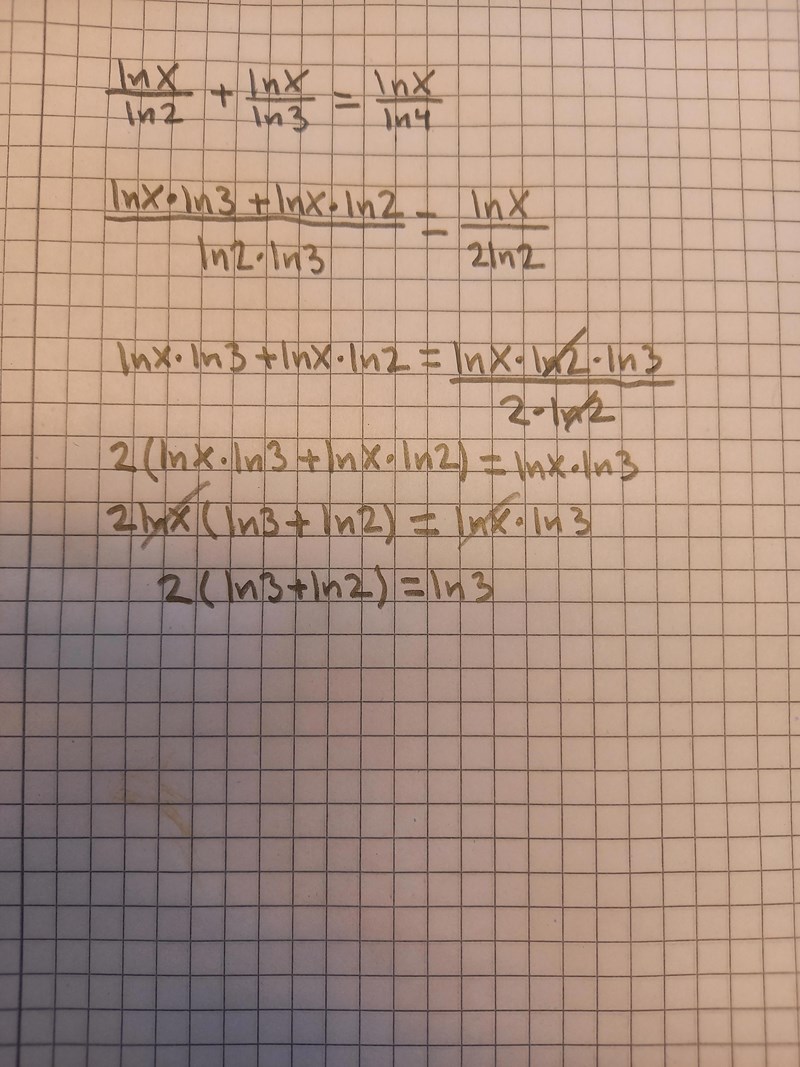 lnx/ln2 + lnx/ln3 = lnx/ln4
(lnx·ln3 + lnx·ln2)/(ln2·ln3) = lnx/(2ln2)
lnx·ln3 + lnx·ln2 = (lnx·ln2·ln3)/(2·ln2)
2(lnx·ln3 + lnx·ln2) = lnx·ln3
2lnx(ln3 + ln2) = lnx·ln3
2(ln3+ln2) = ln3